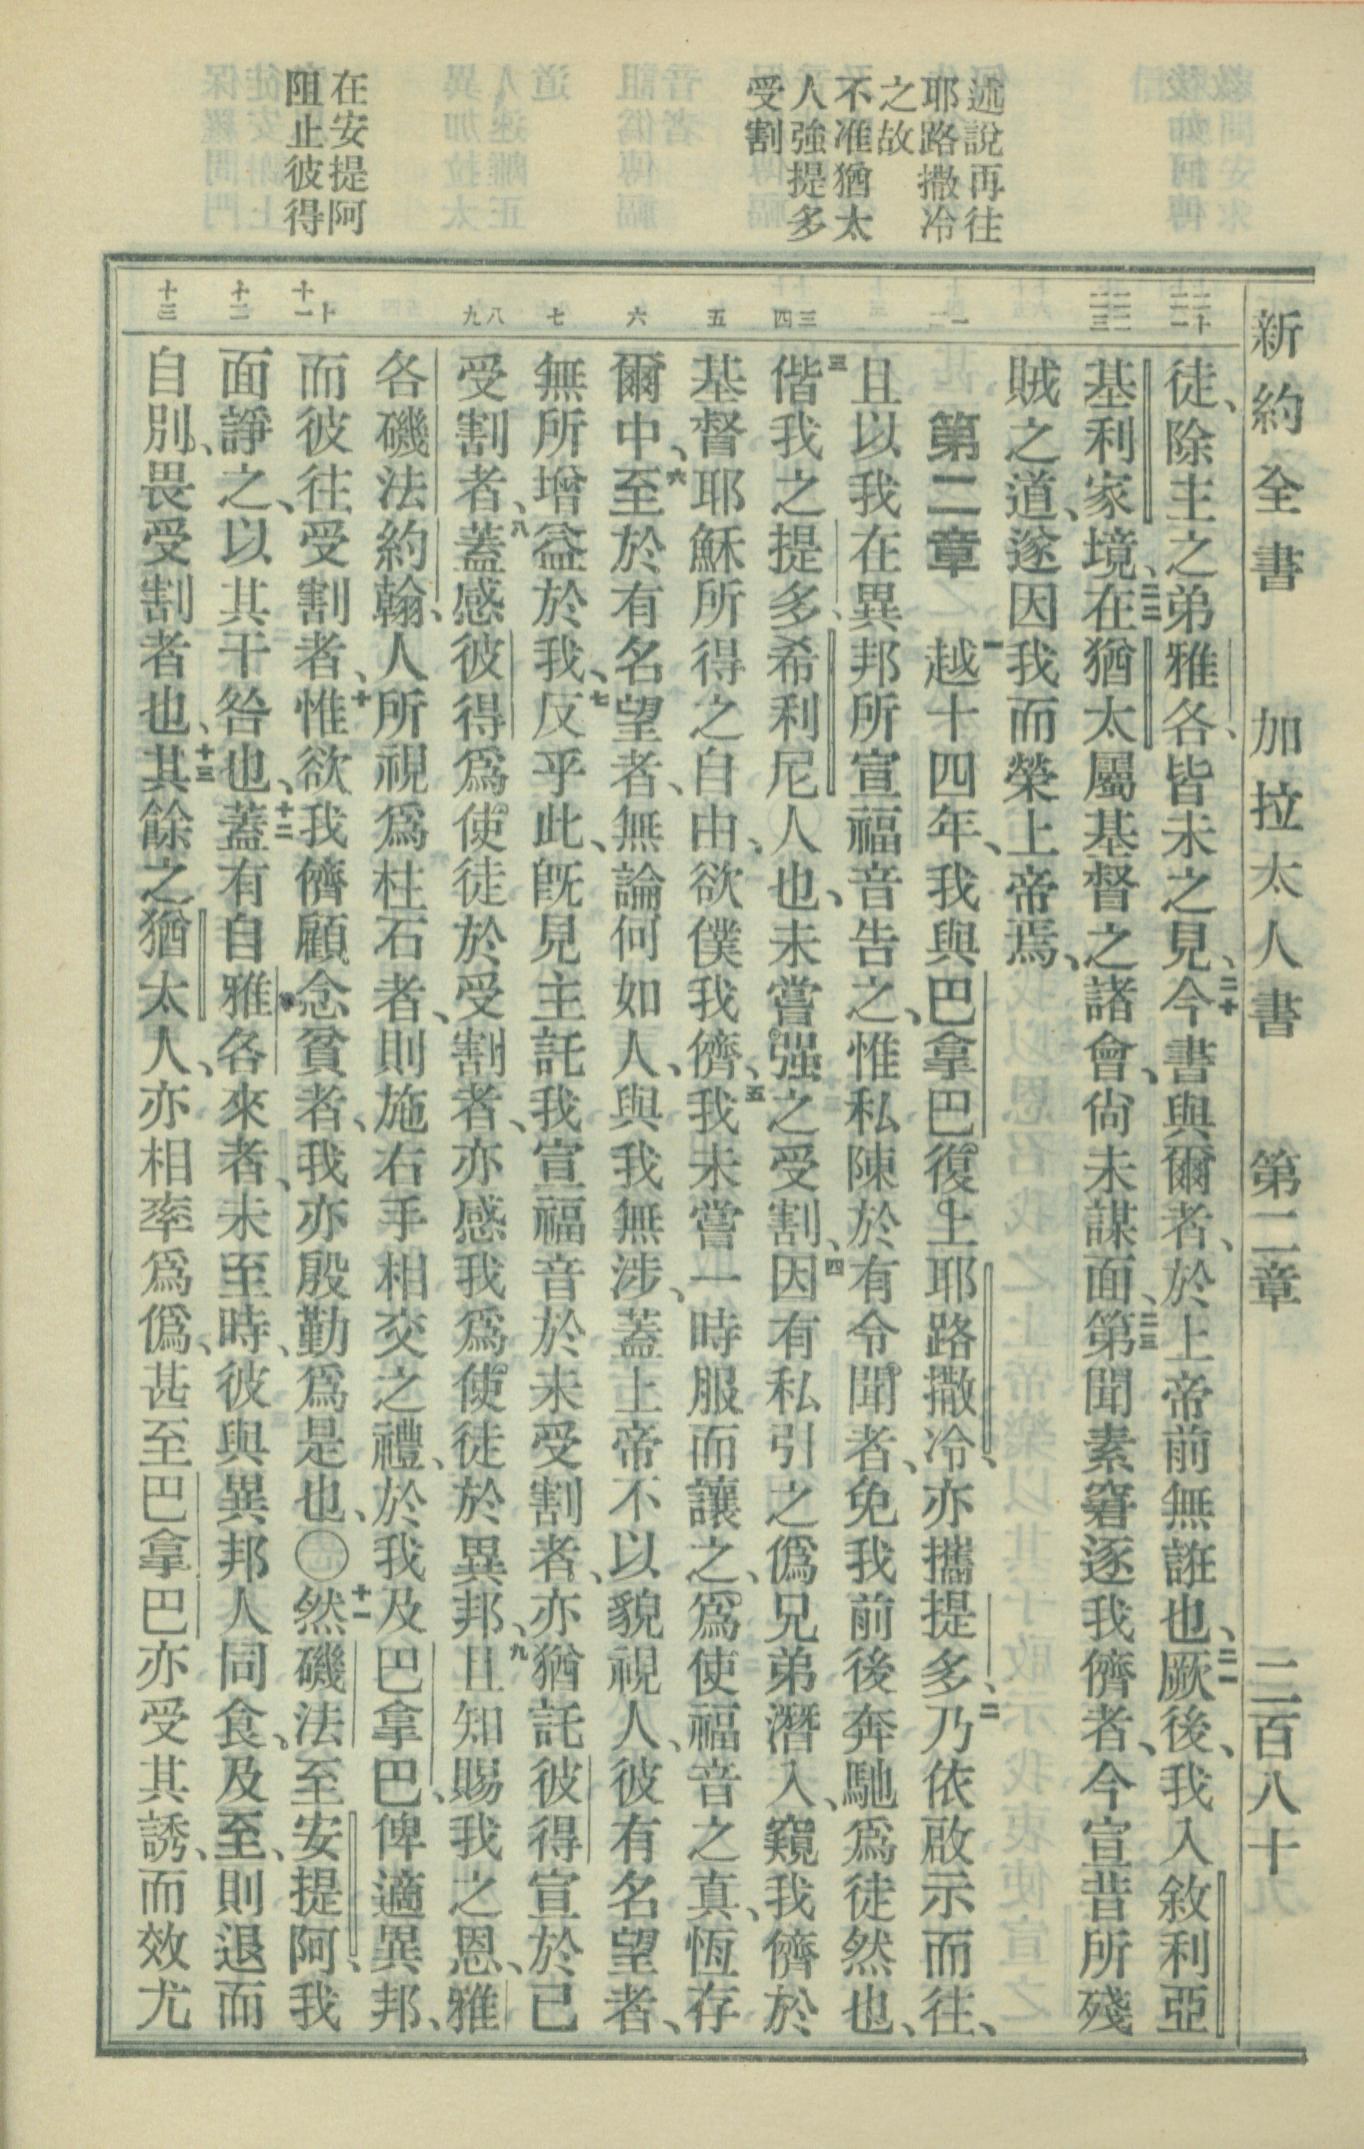 新約全書　加拉太人書　第二章　二百八十
述說再往
耶路撒冷
之故
不准猶太
人強提多
受割
在安提阿
阻止彼得
二十
二一
二二
二三
一
二
三
四
五
六
七
八
九
十
十一
十二
十三
徒、除主之弟雅各、皆未之見、二十今書與爾者、於上帝前無誑也、二一厥後、我入敘利亞
基利家境、二二在猶太屬基督之諸會、尙未謀面、二三第聞素窘逐我儕者、今宣昔所殘
賊之道、遂因我而榮上帝焉、
第二章　一越十四年、我與巴拿巴復上耶路撒冷、亦攜提多、二乃依啟示而往、
且以我在異邦所宣福音告之、惟私陳於有令聞者、免我前後奔馳爲徒然也、
三偕我之提多、希利尼人也、未嘗强之受割、四因有私引之僞兄弟潛入、窺我儕於
基督耶穌所得之自由、欲僕我儕、五我未嘗一時服而讓之、爲使福音之真、恆存
爾中、六至於有名望者、無論何如人、與我無涉、蓋上帝不以貌視人、彼有名望者、
無所增益於我、七反乎此、旣見主託我宣福音於未受割者、亦猶託彼得宣於已
受割者、八蓋感彼得爲使徒於受割者、亦感我爲使徒於異邦、九且知賜我之恩、雅
各磯法約翰、人所視爲柱石者、則施右手相交之禮、於我及巴拿巴、俾適異邦、
而彼往受割者、十惟欲我儕顧念貧者、我亦殷勤爲是也、〇十一然磯法至安提阿、我
面諍之、以其干咎也、十二蓋有自雅各來者、未至時、彼與異邦人同食、及至、則退而
自別、畏受割者也、十三其餘之猶太人、亦相率爲僞、甚至巴拿巴亦受其誘、而效尤